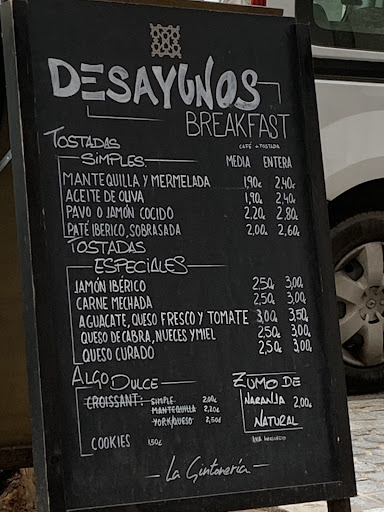 DESAYUNOS
BREAKFAST
TOSTADAS
CAFÉ + TOSTADA
SIMPLES MEDIA ENTERA
MANTEQUILLA Y MERMELADA 1,90€ 2,40€
ACEITE DE OLIVA 1,90€ 2,40€
PAVO O JAMÓN COCIDO 2,20€ 2,80€
PATÉ IBERICO, SOBRASADA 2,00€ 2,60€
TOSTADAS
ESPECIALES
JAMÓN IBÉRICO 2,50€ 3,00€
CARNE MECHADA 2,50€ 3,00€
AGUACATE, QUESO FRESCO Y TOMATE 3,00€ 3,50€
QUESO DE CABRA, NUECES Y MIEL 2,50€ 3,00€
QUESO CURADO 2,50€ 3,00€
ALGO DULCE
CROISSANT: SIMPLE 2,00€
MANTEQUILLA 2,20€
YORK/QUESO 2,50€
COOKIES 1,50€
ZUMO DE
NARANJA 2,00€
NATURAL
La Gintonería